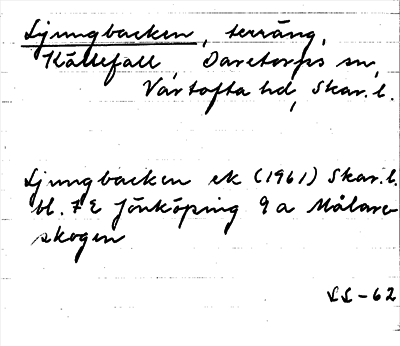 Ljungbacken, terräng,
Källefall, Daretorps sn,
Vartofta hd, Skar. l.
Ljungbacken ek (1961) Skar. l.
bl. 7 E Jönköping 9 a Målare-
skogen
LL-62